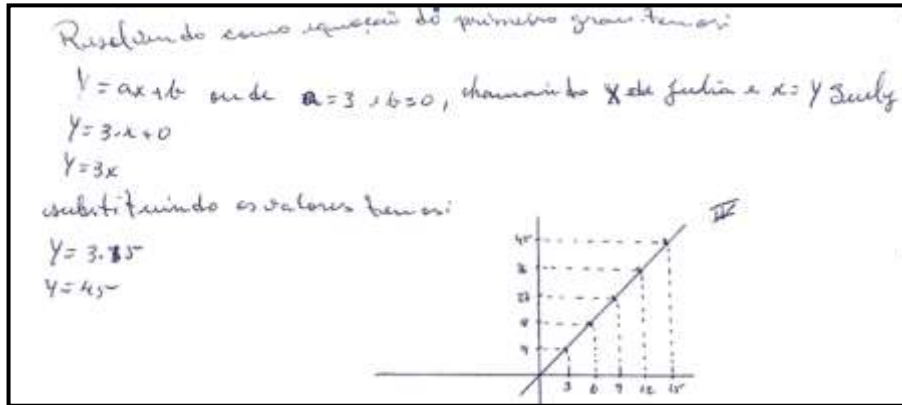 Resolvendo como equação do primeiro grau temos:
Y = ax+b onde a=3 , b=0, chamando X de Julia e x= Y Suely
Y = 3.x+0
Y = 3x
substituindo os valores temos:
Y = 3.15
Y = 45
IV
45
36
27
18
9
3 6 9 12 15